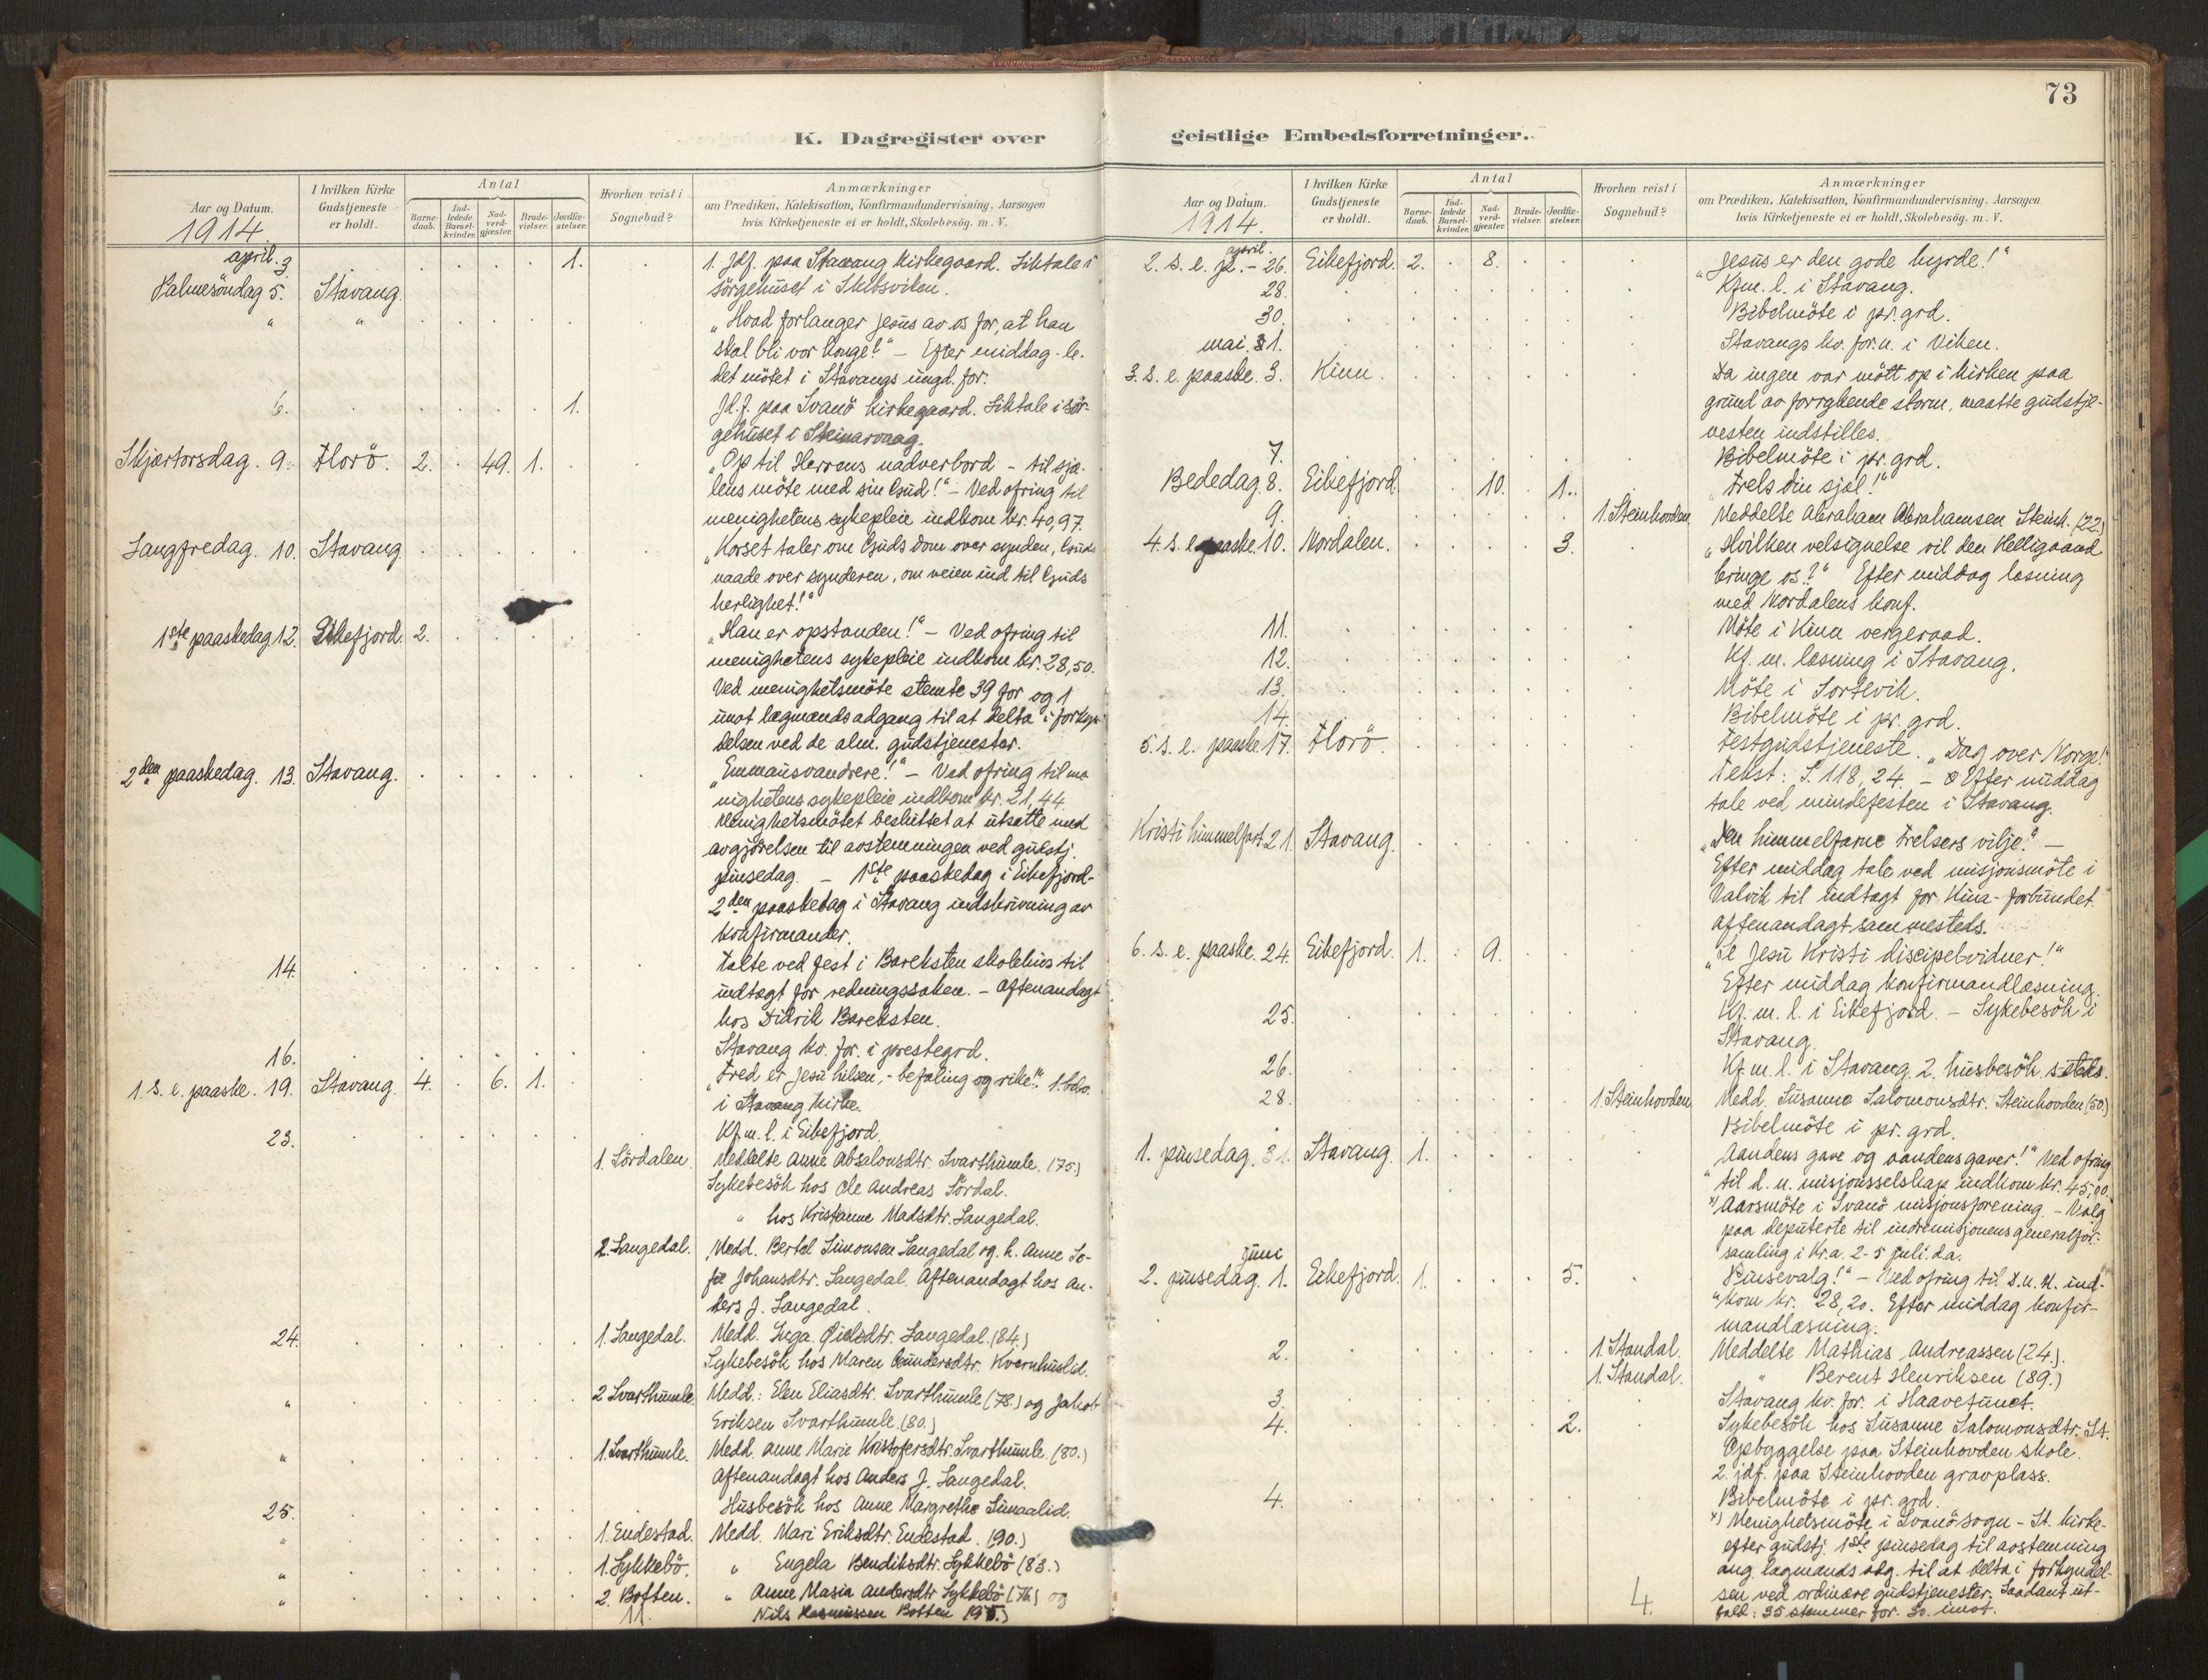 73
K. Dagregister over
geistlige Embedsforretninger.
Aar og Datum.
1914.
I hvilken Kirke Gudstjeneste er holdt.
Antal
Barnedaab.
Indledede Barselkvinder.
Nadverdgjæster.
Brudevielser.
Jordfæstelser.
Hvorhen reist i Sognebud?
Anmærkninger
om Prædiken, Katekisation, Konfirmandundervisning, Aarsagen
hvis Kirketjeneste ei er holdt, Skolebesög. m. V.
april 3. 1. 1. jdf. paa Stavang kirkegaard. Liktale i
Palmesöndag 5. Stavang. sörgehuset i
" " "Hvad forlanger Jesus av os for at han
skal bli vor konge?" – Efter middag le-
det mötet i Stavangs ungd. for.
6. 1. Jd.f. paa Svanö kirkegaard. Liktale i sör-
gehuset i Steinarvaag.
Skjærtorsdag. 9. Florö. 2. 49. 1. "Op til Herrens nadverbord – til sjæ-
lens möte med sin Gud!" – Ved ofring til
menighetens sykepleie indkom kr. 40,97.
Langfredag. 10. Stavang. "Korset taler om Guds dom over synden, Guds
naade over synderen, om veien ind til Guds
herlighet!"
1ste paaskedag 12. Eikefjord. 2. "Han er opstanden!" – Ved ofring til
menighetens sykepleie indkom kr. 28,50.
Ved menighetsmöte stemte 39 for og 1
imot lægmands adgang til at delta i forkyn-
delsen ved de alm. gudstjenester.
2den paaskedag. 13. Stavang. "Emmausvandrere!" – Ved ofring til me-
nighetens sykepleie indkom kr. 21,44.
Menighetsmötet besluttet at utsætte med
avgjörelsen til avstemningen ved gudstj.
pinsedag. – 1ste paaskedag i Eikefjord-
2den paaskedag i Stavang indskrivning av
konfirmander.
14. Talte ved fest i Bareksten skolehus til
indtægt for redningssaken. – Aftenandagt
hos Didrik Bareksten.
16. Stavang kv. for. i prestegrd.
1. s. e. paaske. 19. Stavang. 4. 6. 1. "Fred er Jesu hilsen, - befaling og rike!"
i Stavang kirke.
23. Kf.m. l. i Eikefjord.
1. Sördalen. Meddelte Anne Absalonsdtr. Svarthumle. (75.)
Sykebesök hos Ole Andreas Sördal.
" hos Kristanne Madsdtr. Langedal.
2. Langedal. Medd. Bertel Simonsen Langedal og h. Anne So-
fie Johansdtr. Langedal. Aftenandagt hos An-
ders J. Langedal.
24. 1. Langedal. Medd. Inga Langedal. (84.)
Sykebesök hos Maren Gundersdtr. Kvernhuslid.
" 2 Svarthumle. Medd.: Elen Eliasdtr. Svarthumle (78.) og Jakob
Eriksen Svarthumle. (80.)
" 1. Svarthumle. Medd. Anne Marie Kristofersdtr. Svarthumle. (80.)
Aftenandagt hos Anders J. Langedal.
25. Husbesök hos Anne Margrethe
" 1. Endestad. Medd. Mari Eriksdtr. Endestad. (90.)
" 1. Sykkebö. " Engela Bendiksdtr. Sykkebö (83.)
" 2. Botten. " Anne Maria Andersdtr. Sykkebö (76) og
11. Nils Rasmussen Botten
Aar og Datum.
1914.
I hvilken Kirke Gudstjeneste er holdt.
Antal
Barnedaab.
Indledede Barselkvinder.
Nadverdgjæster.
Brudevielser.
Jordfæstelser.
Hvorhen reist i Sognebud?
Anmærkninger
om Prædiken, Katekisation, Konfirmandundervisning. Aarsagen
hvis Kirketjeneste ei er holdt, Skolebesög. m. V.
april.
2. s. e. p. – 26. Eikefjord. 2. 8. "Jesus er den gode hyrde!"
28. Kfm. l. i Stavang.
30. Bibelmöte i pr. grd.
mai. 1. Stavangs kv. for. u. i Viken.
3. s. e. paaske. 3. Kinn. Da ingen var mött op i kirken paa
grund av forrykende storm, maatte gudstje-
nesten indstilles.
7. Bibelmöte i pr. grd.
Bededag. 8. Eikefjord. 10. 1. "Frels din sjæl!"
9. 1. Steinhovden. Meddelte Abraham Abrahamsen Steinh. (22.)
4. s. e. paaske. 10. Nordalen. 3. "Hvilken velsignelse vil den Helligaand
bringe os?" Efter middag læsning
med Nordalens konf.
11. Möte i Kinn vergeraad.
12. Kf. m. læsning i Stavang.
13. Möte i Sortevik.
14. Bibelmöte i pr. grd.
5. s. e. paaske. 17. Florö. Festgudstjeneste. "Dag over Norge!"
Tekst: S. 118, 24. – Efter middag
tale ved mindefesten i Stavang.
Kristi himmelfart 21. Stavang. "Den himmelfarne frelsers vilje." –
Efter middag tale ved misjonsmöte i
Valvik til indtægt for Kina-forbundet.
Aftenandagt sammesteds.
6. s. e. paaske. 24. Eikefjord. 1. 9. "Se Jesu Kristi discipelvidner!"
Efter middag konfirmandlæsning.
25. Kf. m. l. i Eikefjord. – Sykebesök i
Stavang.
26. Kf. m. l. i Stavang. 2. husbesök
28. 1. Steinhovden. Medd. Susanne Salomonsdtr. Steinhovden (50.)
Bibelmöte i pr. grd.
1. pinsedag. 31. Stavang. 1. "Aandens gave og aandens gaver!" Ved ofring
til d. n. misjonsselskap indkom kr. 45,00.
x) Aarsmöte i Svanö misjonsforening. – Valg
paa deputerte til indremisjonens generalfor-
samling i Kr.a. 2-5 juli. d.a.
juni
2. pinsedag. 1. Eikefjord. 1. 5. "Pinsevalg!" – Ved ofring til D.n.M. ind-
kom kr. 28,20. Efter middag konfir-
mandlæsning.
2. 1. Standal. Meddelte Mathias Andreassen (24.)
1. Standal. " Berent Henriksen (89.)
3. Stavang kv. for. i Haavetunet.
4. 2. Sykebesök hos Susanne Salomonsdtr. St.
Opbyggelse paa Steinhovden skole.
2. jdf. paa Steinhovden gravplass.
4. Bibelmöte i pr. grd.
x) Menighetsmöte i Svanö sogn – St. kirke-
efter gudstj. 1ste pinsedag til avstemning
ang. lægmands adg. til at delta i forkyndel-
sen ved ordinære gudstjenester. Saadant ut-
4. fald: 35 stemmer for. 30. imot.